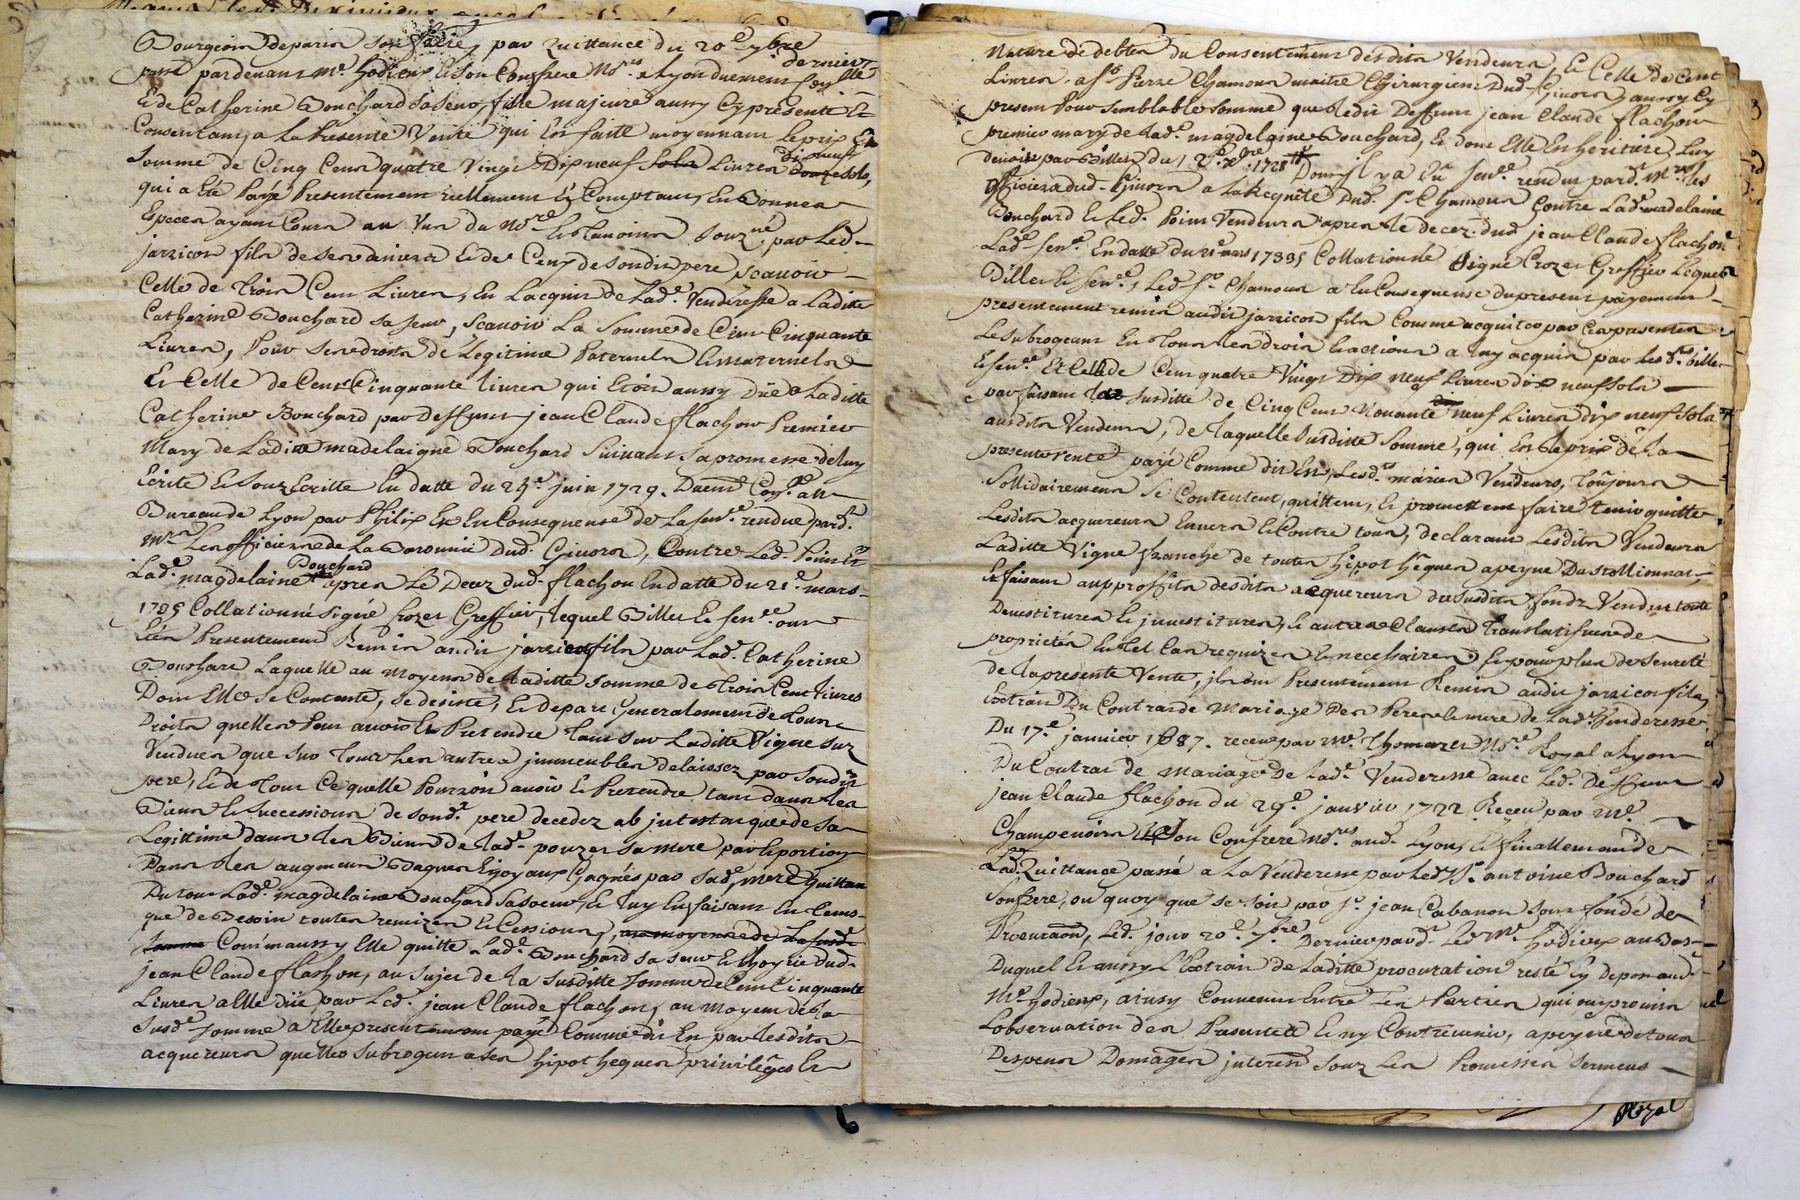 Bourgeois de paris son frere, par quittance du 20e 7bre dernier
passé pardevant me. hodieux & son Confrere Nores a Lyon duement Conlle
Et de Catherine Bouchard sa seur, fille majeure aussy Cy présente Et
Consentant, a La Presente Vente qui Est faitte moyennant Le prix Et
Somme de Cinq Cent quatre Vingt Dix neuf sols Livres dix neuf sols,
qui a Eté Payé Presentement reellement & Comptant, En Bonnes
Especes ayant Cours au Vun du Nore & Temoins Souzné. par Led.
jarricot fils de ses deniers Et de Ceux de sondit pere, scavoir
Celle de Trois Cent Livres, En L'acquit de Lade. Venderesse a Laditte
Catherine Bouchard sa seur, Scavoir La Somme de Cent Cinquante
Livres, Pour ses droits de Legitime Paternels & maternels
Et Celle de Cent Cinquante livres qui Etoit aussy Düe a Laditte
Catherine Bouchard par deffunt jean Claude flachon Premier
Mary de Laditte madelaigne Bouchard Suivant sa promesse de luy
Ecrite & Souz Ecritte En datte du 24e. juin 1729. Duemt Conlé. au
Bureau de Lyon par Philip Et En Consequense de La senee. rendue pard.
Mrs. Les officiers de La Baronnie Dud. Givors, Contre Led. Point Et
Lade. magdelaine Bouchard apres Le Decez dud. flachon En datte du 21e. mars
1735 Collationné signé Crozet Greffier, Lequel Billet & senee. ont
Etés Presentement Remis audit jarricot fils par Lad. Catherine
Bouchard Laquelle au moyen de Laditte Somme de Trois Cent Livres
Dont Elle Se Contente, se desiste, Et depart Generalement de Tous
Droits quelles Peut avoir & Pretendre Tant sur Laditte Vigne Suz
Vendues que sur Tous Les autres jmmeubles delaissez par sondit
pere, Et de Tout Ce quelle Pourroit avoir & Pretendre tant dans Les
Biens & Successions de sond. pere decedez ab jntestat que de Sa
Legittime dans Les Biens de Lade. pouzet Sa Mere, par & portion
Dans Les augment Bagues & joyaux Gagnés par Sade. mere quittant
Du tout Lade. magdelaine Bouchard Sa Soeur, & Luy En faisant En tems
que de Besoin toutes remizes & Cessions, au moyen de La susd.
Somme Comm'aussy Elle quitte Lade. Bouchard sa seur & hoyrie dud.
jean Claude flachon, au sujet de la Susditte Somme de Cent Cinquante
Livres a Elle düe par Led. jean Claude flachon, au moyen de La
Susde. somme a Elle presentement payé Comme dit Est par Lesdits
acquereurs quelles subrogent a ses hipotheques privilêges &
Nature de debtes du Consentement desdits Vendeurs, Et Celle de Cent
Livres a Sr. Pierre Chamoux maitre Chirurgien Dud. Givors, aussy Cy
present Pour Semblable Somme que Ledit Deffunt jean Claude flachon
premier mary de Lade. magdelaine Bouchard, Et dont Elle Est heritiere, Luy
devoit par Billet du 12e. xbre 1728 Dont jl y a Eu senee. rendue pard. Mrs. les
officiers dud. Givors a La Requête Dud. Sr. Chamoux Contre Lade. madelaine
Bouchard & Led. Point Vendeurs apres Le decez dud. jean Claude flachon
Lade. sene. En datte du 21 mars 1735 Collationné Signé Crozet Greffier Lequel
Billet & sene. Led. Sr. Chamoux a En Consequense du present payement
presentement remis audit jarricot fils Comme acquittés par Ces presentes
Le subrogeant En Tous Les droits & actions a Luy acquis par Lesds. billet
& sene. Et Celle de Cent quatre Vingt Dix neuf Livres dix neuf sols
parfaisant La Susditte de Cinq Cent Nonante neuf Livres dix neuf Sols
ausdits Vendeurs, de Laquelle Susditte Somme, qui Est Le prix de la
presente Vente payé Comme dit Est, Lesds. mariés Vendeurs, Toujours
Sollidairement Se Contentent, quittent, & promettent faire Tenir quitte
Lesdits acquereurs Envers & Contre tous, declarant Lesdits Vendeurs
Laditte Vigne franche de toutes hipotheques a peyne Du Stellionnat
Et faisant au proffit desdits acquereurs du Susdit fondz Vendu toute
Devestitures & jnvestitures, & autres Clauses Translatisves de
proprietés En tel Cas requizes & necessaires, Et pour plus de seureté
de la presente Vente, jls ont Presentement Remis audit jarricot fils
Extrait Du Contrat de Mariage Des Pere & mere de Lade. Venderesse
Du 17e. janvier 1687. receu par me. Thomazet Nore. Royal a Lyon
Du Contrat de Mariage De Lade. Venderesse avec Led. Deffunt
jean Claude flachon du 29e. janvier 1722 Receu par Me.
Champenois & son Confrere Nores. aud. Lyon, Et finallement de
Lad. Quittance passé a La Venderesse par Led. Sr. antoine Bouchard
Son frere, ou quoy que se soit par Sr. jean Cabanon Son fondé de
Procuraõn, Led. jour 20e. 7bre. Dernier pard. Led. Me. hodieux au Bas
Duquel Et aussy L'Extrait de Laditte procuration resté Cy depozé aud.
Me. hodieux, ainsy Convenus Entre Les Parties qui ont promis
L'observation des Presentes & n'y Contrevenir, a peyne de tous
Despens Domages jnterests Souz Les Promesses sermens
Royal